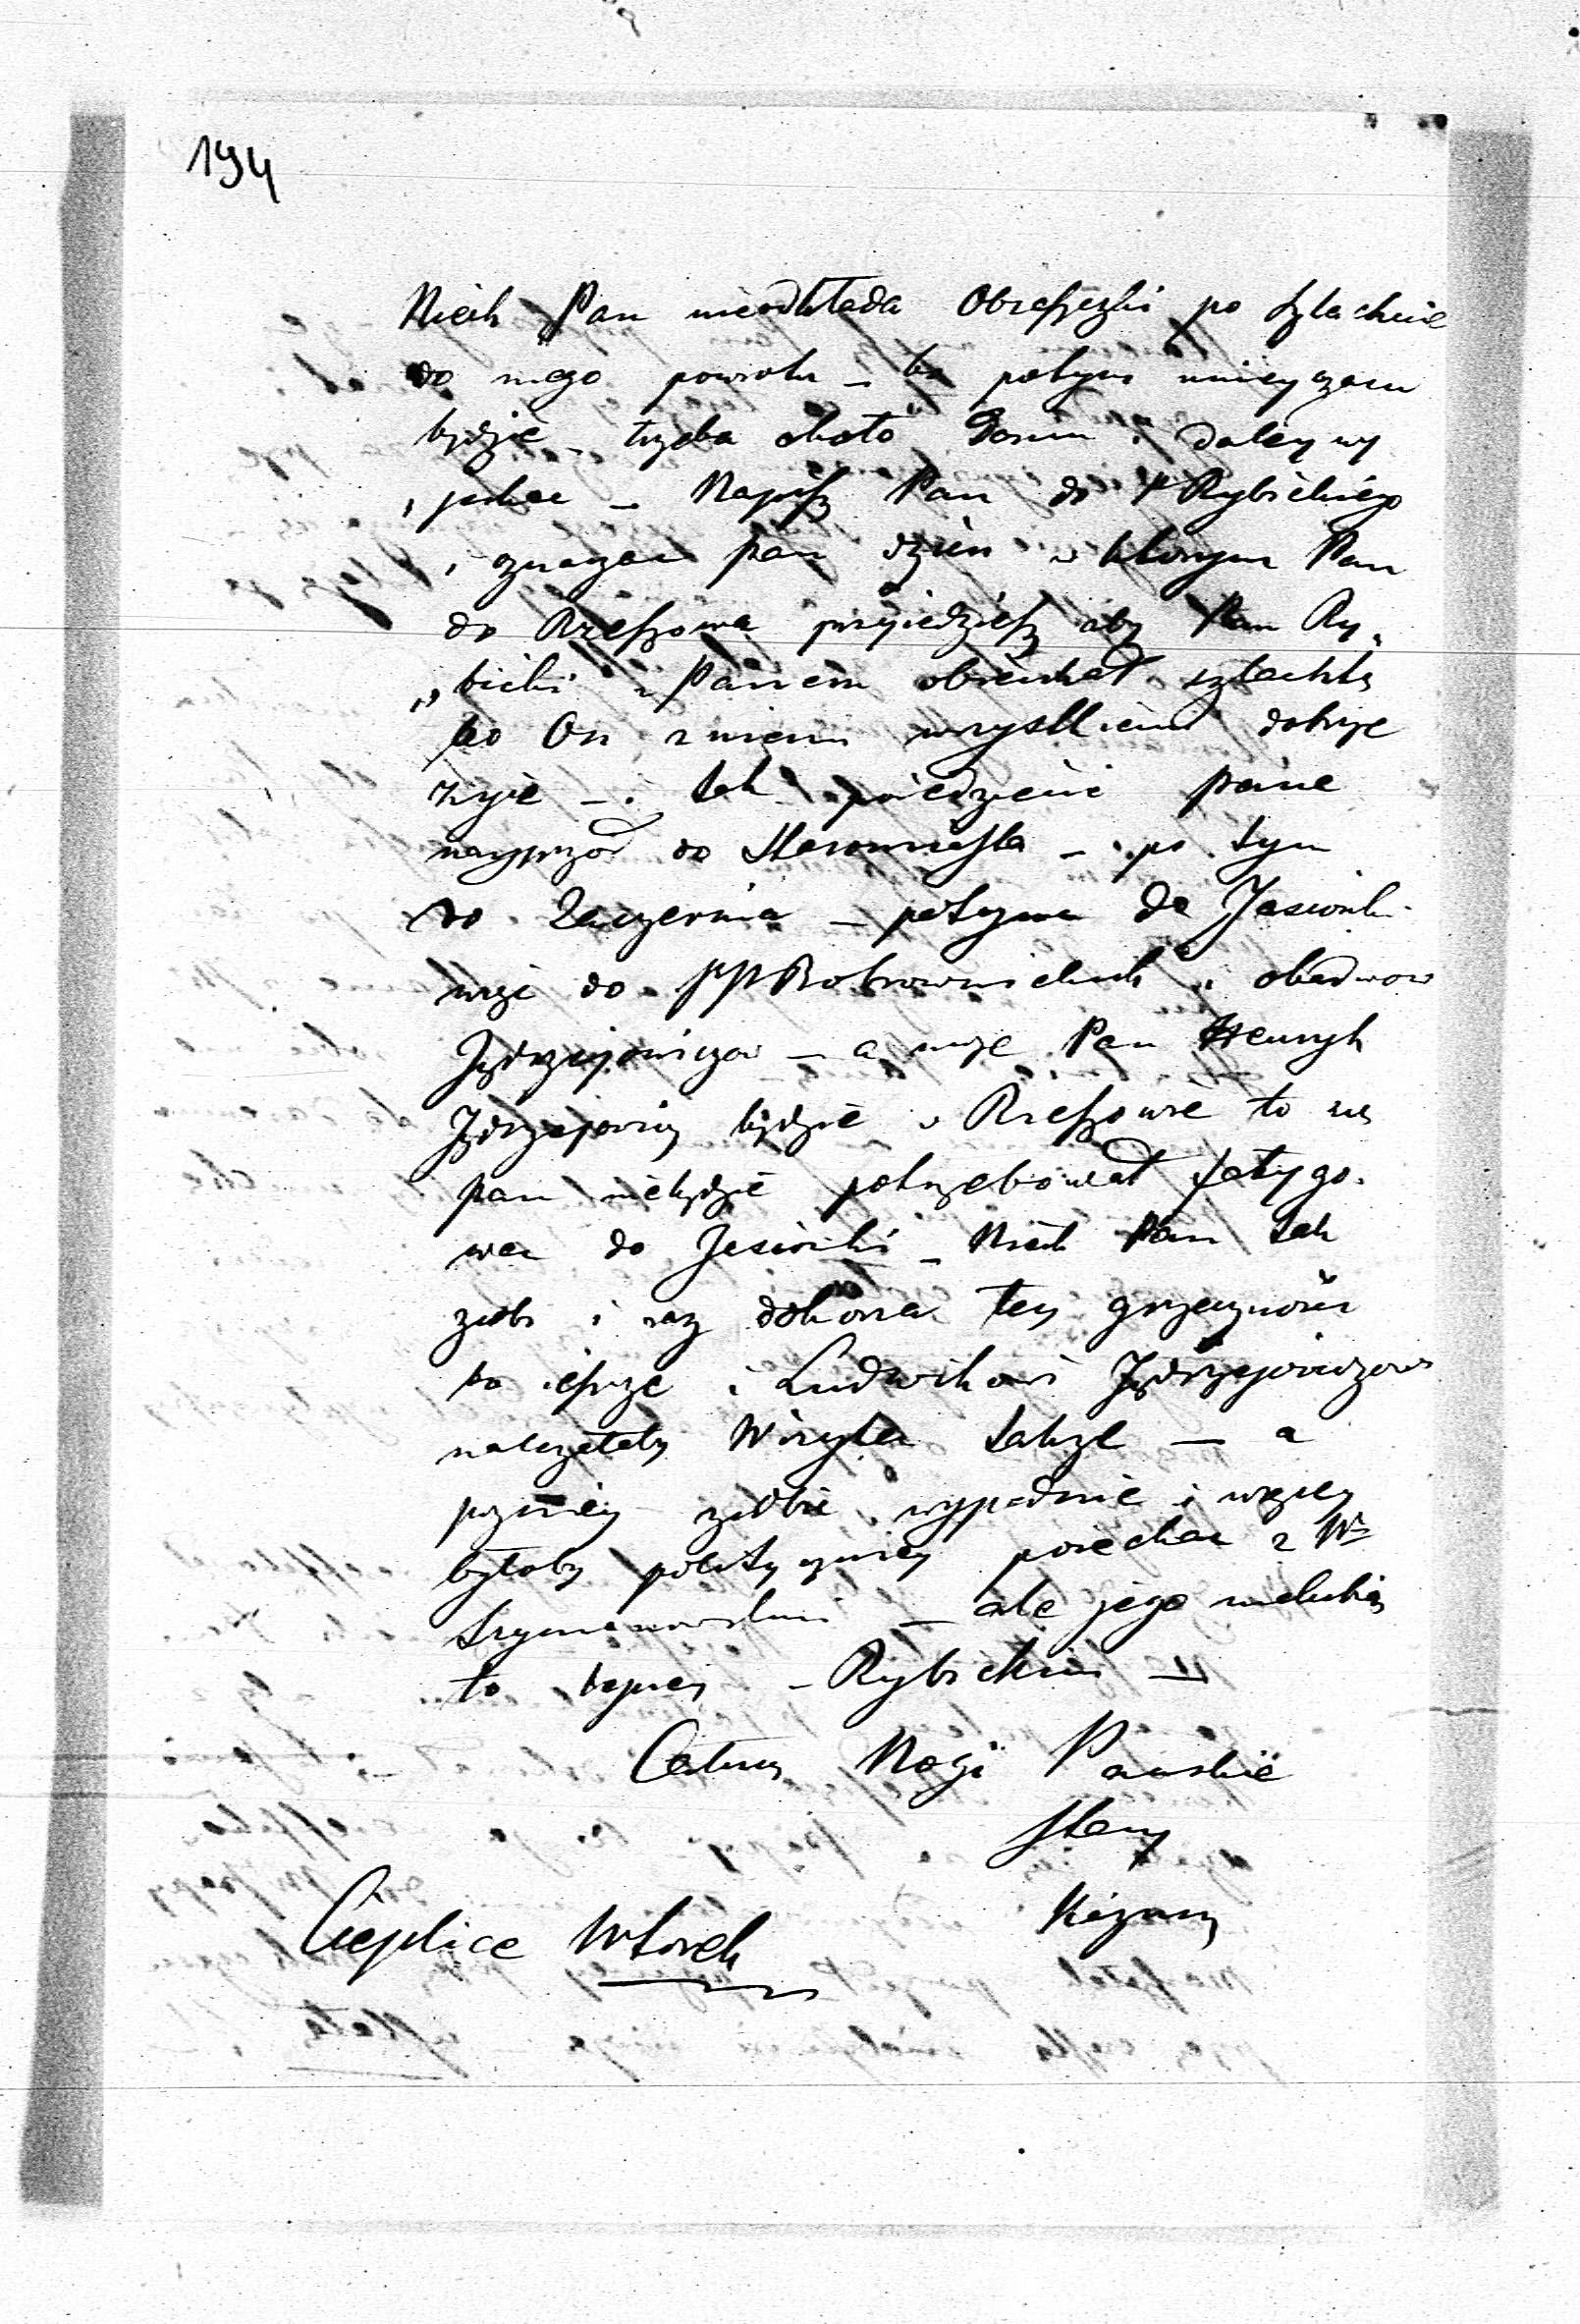 194
Niech Pan nieodkłada Obreszczki po szlachcie
do mego powrotu – bo potym mniey czasu
będzie – trzeba około Domu i daley wy
jechac – Napisz Pan do P Rybickiego
i oznaczac pan dzien w ktorym Pan
do Rzeszowa przyiedziesz aby Pan Ry„
„bicki z Panem obiechał szlachtę
bo On z niemi wszystkiemi dobrze
zyie – i tak poiedziecie Panie
nayprzod do Staromiasta – po tym
do Zaczernia – potym do Jasionki
wsze do PP Bobrownickich i obudwow
Jędrzejowiczow – a może Pan Henryk
Jędrzejowicz będzie w Rzeszowie to się
pan niebędzie potrzebował fatygo.
wac do Jasionki – Niech Pan tak
zrobi i raz dokona tey grzecznosci
bo ieszcze i Ludwikowi Jędrzejowiczowi
należałaby Wizyta także – a
pozniey zimie wypadnie i więcey
byłoby polityczniey poiechac z Wm
Szymanowskim – ale jego nielubią
to lepiey – Rybickim –
Całuię Nogi Pańskie
Stary
Kaźmirz
Cieplice Wtorek